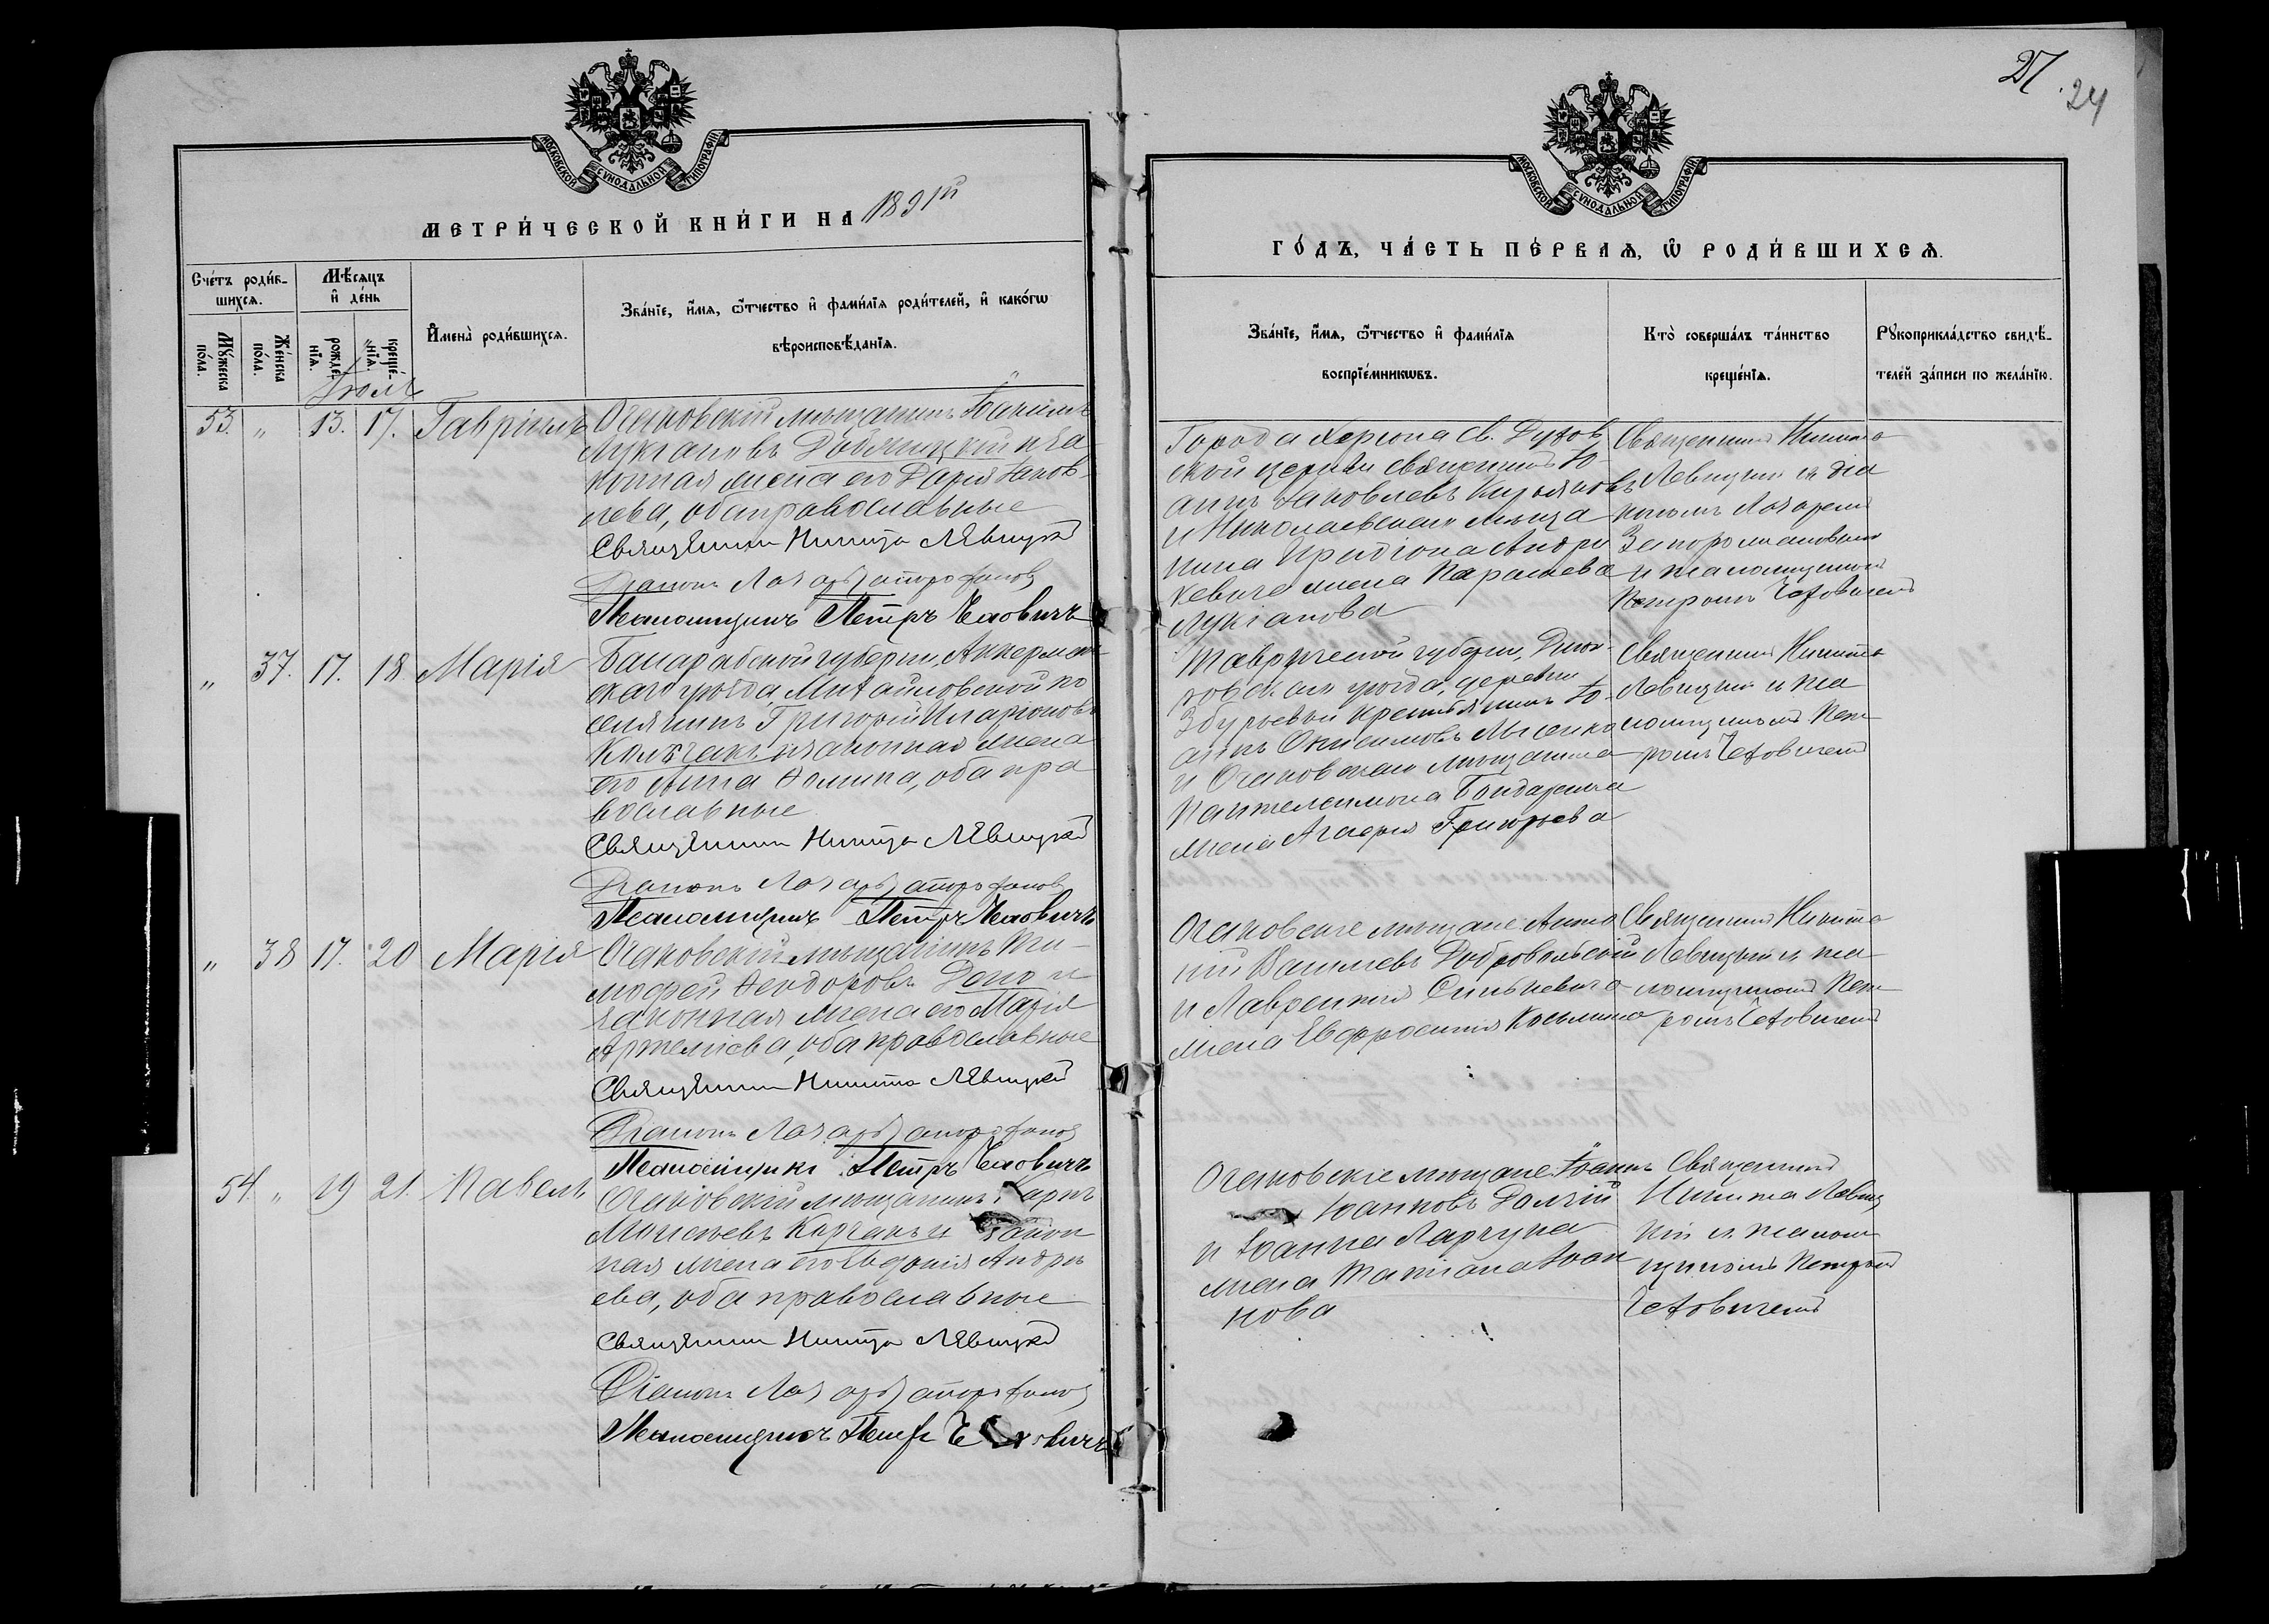 27.
24
МОСКОВСКОЙ СУНОДАЛЬНОЙ ТИПОГРАФІИ
МЕТРИ́ЧЕСКОЙ КНИ́ГИ НА 1891й
Сче́тъ роди́вшихся.
Мѣ́сяцъ и҆ де́нь
Му́жеска по́ла.
Же́нска по́ла.
рожде́нїя.
креще́нїя.
И҆мена̀ роди́вшихся.
Зва́нїе, и҆́мя, ѻ҆́тчество и҆ фами́лїя роди́телей, и҆ како́гѡ
вѣроисповѣ́данїя.
Іюль
53. " 13. 17. Гавріилъ
Очаковскій мѣщанинъ
Лукіановъ и за
конная жена его Дарія Іаков
лева, оба православные
Священникъ Никита Левицкій
Діаконъ Лазарь
Псаломщикъ Петръ Чеховичъ
" 37. 17. 18 Марія
Бессарабской губерніи, Аккерман
скаго уѣзда, Михайловской по
селянинъ Григорій Иларіоновъ
и законная жена
его Анна Фомина, оба пра
вославные
Священникъ Никита Левицкій
Діаконъ Лазарь
Псаломщикъ Петръ Чеховичъ
" 38 17. 20 Марія
Очаковскій мѣщанинъ Ти-
мофей Ѳеодоровъ и
законная жена его Марія
Артемьева, оба православные
Священникъ Никита Левицкій
Діаконъ Лазарь
Псаломщикъ Петръ Чеховичъ
54. " 19 21. Павелъ
Очаковскій мѣщанинъ Карпъ
Моисеевъ и закон
ная жена его Евдокія Андре
ева, оба православные
Священникъ Никита Левицкій
Діаконъ Лазарь
Псаломщикъ Петръ Чеховичъ
МОСКОВСКОЙ СУНОДАЛЬНОЙ ТИПОГРАФІИ
ГО́ДЪ, ЧА́СТЬ ПЕ́РВАЯ, Ѡ҆ РОДИ́ВШИХСЯ.
Зва́нїе, и҆́мя, ѻ҆́тчество и҆ фами́лїя
воспрїе́мникѡвъ.
Кто̀ соверша́лъ та́инство
креще́нїя.
Рꙋкоприкла́дство свидѣ́-
телей за́писи по жела́нїю.
Города Херсона Св. Духов
ской церкви священникъ Іо
аннъ Іаковлевъ
и Николаевскаго мѣща
нина Иродіона Андру
кевича жена Параскева
Лукіанова
Священникъ Никита
Левицкій съ діа
кономъ Лазаремъ
и псаломщикомъ
Петромъ Чеховичемъ
Таврической губерніи, Днѣп
ровскаго уѣзда, деревни
Збурьевки крестьянинъ Іо
аннъ Онисимовъ Лысенко
и Очаковскаго мѣщанина
Пантелеимона Бондаренка
жена Агафія Григорьева
Священникъ Никита
Левицкій и пса
ломщикомъ Пет
ромъ Чеховичемъ
Очаковскіе мѣщане
Василіевъ Добровольскій
и Лаврентія Синькевича
жена Евфросинія Косьмина
Священникъ Никита
Левицкій съ пса
ломщикомъ Пет
ромъ Чеховичемъ
Очаковскіе мѣщане Іоаннъ
Іоанновъ Долгій
и Іоанна
жена Татіана Іоан
нова
Священникъ
Никита Левиц
кій съ псалом
щикомъ Петромъ
Чеховичемъ